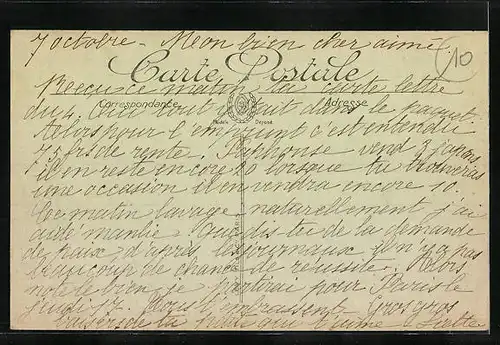 7 octobre - Mon bien cher aimé
10
Carte Postale
Reçu ce matin ta carte lettre
Correspondance Adresse
du 4. Oui tout était dans le paquet
Alors pour l'emprunt c'est entendu
frs de rente. Alphonse vend 3 lapins
il en reste encore 10 lorsque tu trouveras
une occasion il en vendra encore 10.
Ce matin lavage naturellement j'ai
aidé mantie Oui j'ai lu de la demande
de paix, d'après les journaux il n'y a pas
beaucoup de chance de réussite. Alors
note le bien je partirai pour Paris le
jeudi 17. Tous t'embrassent. Gros gros
baisers de ta petite qui t'aime